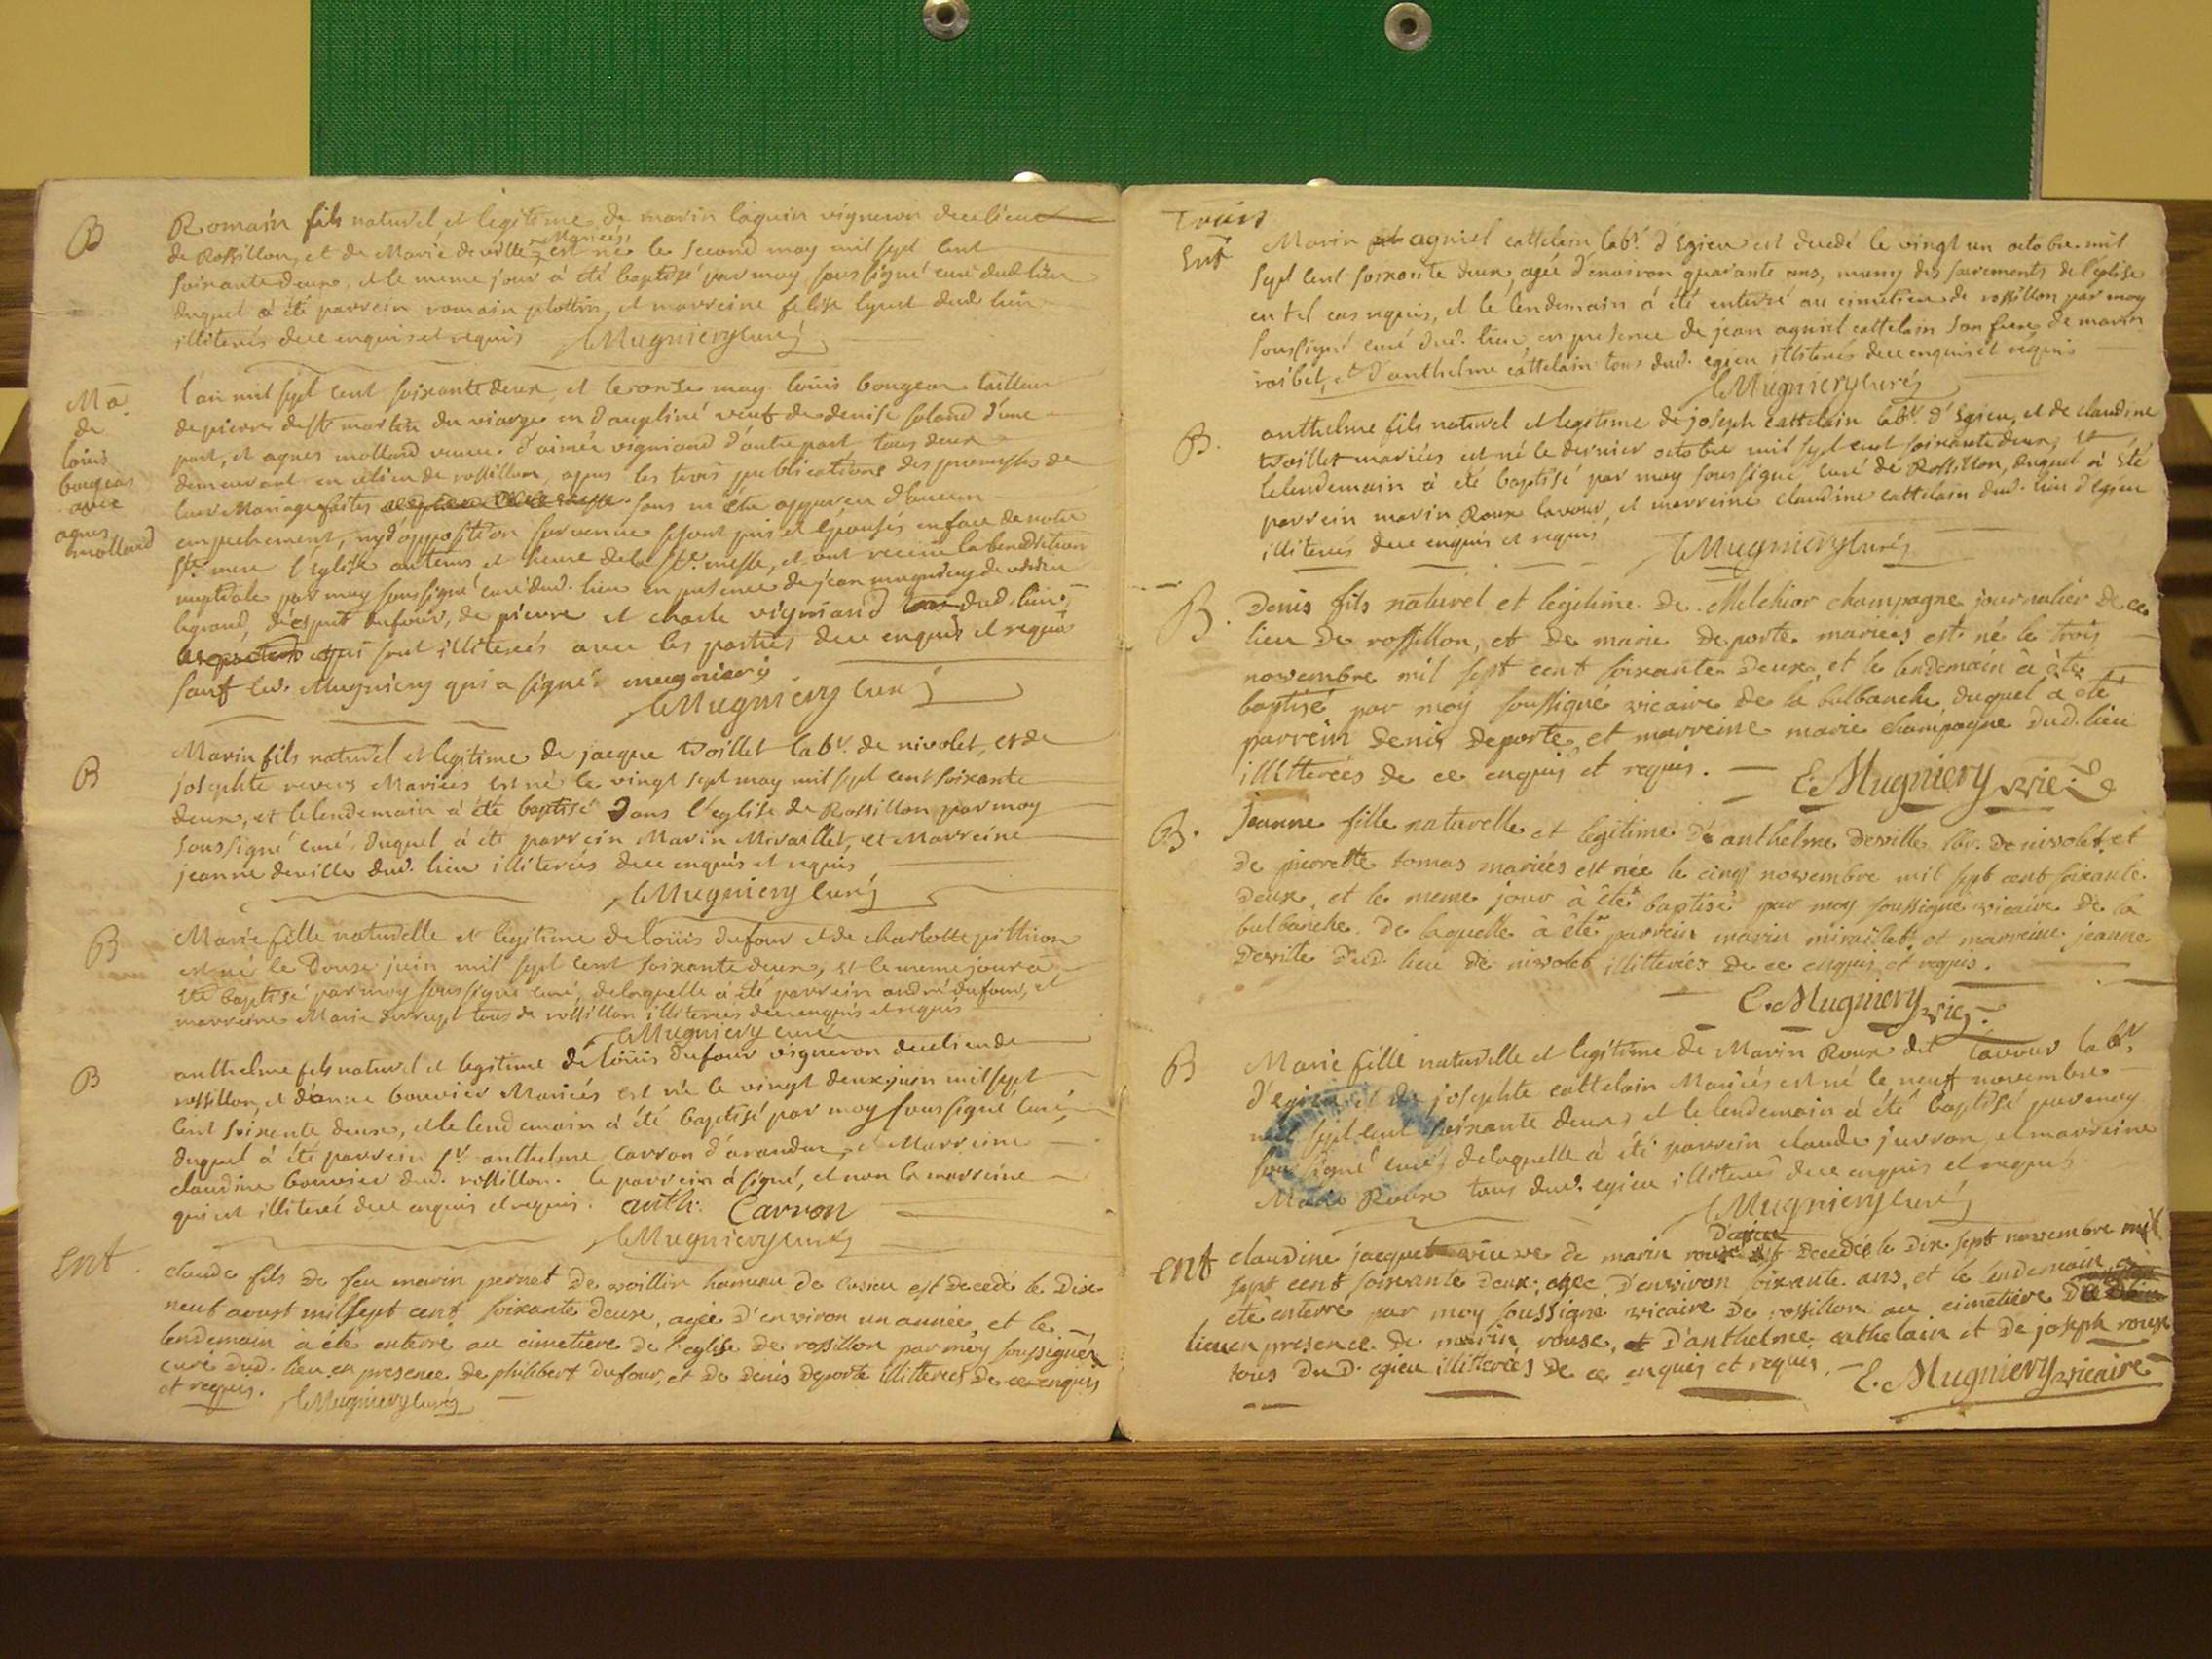 B
Romain fils naturel et legitime de marin laguin vigneron de ce lieu
de Rossillon, et de Marie deville Mariés, est né le second may mil sept cent
soixante deux, et le meme jour à été baptisé par moy soussigné curé dud. lieu
duquel à été parrein romain plottin, et marreine felise lynet dud. lieu
illiterés de ce enquis et requis Mugniery curé
Ma.
de
loüis
bougeas
avec
agnes
mollard
l'an mil sept cent soixante deux, et le onze may loüis bougeon tailleur
de pierre de st. martin du viarge en daupliné veuf de denise soland d'une
part, et agnes mollard veuve d'aimée vigniand d'autre part tous deux
demeurant en ce lieu de rossillon, apres les trois publications des promesses de
leur Mariage faites sans m'être apparu d'aucun
empechement, ny d'opposition survenue se sont pris et épousés en face de notre
Ste. mere l'Eglise au tems et heure de la Ste. messe, et ont receu la benediction
nuptiale par moy soussigné curé dud. lieu en presence de jean mugniery de
legrand, d'esprit dufour, de pierre et charle vigniand dud. lieu,
qui sont illiterés avec les parties de ce enquis et requis
sauf led. Mugniery qui a signé. mugniery
Mugniery curé
B
Marin fils naturel et legitime de jacque Woillet labr. de nivolet, et de
josephte revers Mariés, est né le vingt sept may mil sept cent soixante
deux, et le lendemain à été baptisé Dans l'eglise de Rossillon par moy
soussigné curé, duquel à été parrein Marin Miraillet, et Marreine
jeanne deville dud. lieu illiterés de ce enquis et requis
Mugniery curé
B
Marie fille naturelle et legitime de loüis dufour et de charlotte pithion
est né le Douze juin mil sept cent soixante deux, et le meme jour à
été baptisé par moy soussigné curé, de laquelle à été parrein andré dufour, et
marreine Marie durrupt tous de rossillon illiterés de ce enquis et requis
Mugniery curé
B
anthelme fils naturel et legitime de loüis dufour vigneron de ce lieu de
rossillon, et d'anne bouvier Mariés est né le vingt deux juin mil sept
cent soixente deux, et le lendemain à été baptisé par moy soussigné curé,
duquel à été parrein sr. anthelme carron d'arandas, et Marreine
claudine bouvier dud. rossillon. le parrein à signé, et non la marreine
qui est illiteré de ce enquis et requis. anth: Carron
Mugniery curé
Ent.
claude fils de feu marin pernet de voillin hameau de cuseu est decedé le Dix
neuf aoust mil sept cent soixante deux, agée d'environ un année, et le
lendemain à été enterré au cimetiere de l'eglise de rossillon par moy soussigné
curé dud. lieu en presence de philibert dufour, et de denis deporte illitterés de ce enquis
et requis. Mugniery curé
Trois
Ent
Marin agniel cattelain labr. d'Egieu est decedé le vingt un octobre mil
sept cent soixante deux, agée d'environ quarante ans, muny des sacrements de l'église
en tel cas requis, et le lendemain à été enterré au cimetiere de rossillon par moy
soussigné curé dud. lieu, en presence de jean agniel cattelain son frere, de marin
roibet, et d'anthelme cattelain tous dud. egieu illiterés de ce enquis et requis
Mugniery curé
B.
anthelme fils naturel et legitime de joseph cattelain labr. d'Egieu, et de claudine
Woillet mariés est né le dernier octobre mil sept cent soixante deux, et
le lendemain à été baptisé par moy soussigné curé de Rossillon, duquel à été
parrein marin Roux lavour, et marreine claudine cattelain dud. lieu d'egieu
illiterés de ce enquis et requis Mugniery curé
B.
Denis fils naturel et legitime de Melchior champagne journalier de ce
lieu de rossillon, et de marie deporte mariés est né le trois
novembre mil sept cent soixante deux, et le lendemain à été
baptisé par moy soussigné vicaire de la balbanche, duquel à été
parrein denis deporte, et marreine marie champagne dud. lieu
illitterées de ce enquis et requis. E. Mugniery vic.
B.
jeanne fille naturelle et legitime d'anthelme deville lbr. de nivolet et
de pierrette tomas mariés est née le cinq novembre mil sept cent soixante
deux, et le meme jour à été baptisé par moy soussigné vicaire de la
balbanche. de laquelle à été parrein marin miraillet, et marreine jeanne
deville dud. lieu de nivolet illitterées de ce enquis et requis.
E. Mugniery vic.
B
Marie fille naturelle et legitime de Marin Roux dit lavour labr.
d'egieu et de josephte cattelain Mariés est né le neuf novembre
mil sept cent soixante deux, et le lendemain à été baptisé par moy
soussigné curé, de laquelle à été parrein claude juvron, et marreine
Marie Roux tous dud. egieu illiterés de ce enquis et requis
Mugniery curé
Ent
claudine jacquet vieuve de marin roux D'egieu est decedée le dix sept novembre mil
sept cent soixante deux; agee d'environ soixante ans, et le lendemain
eté enterre par moy soussigne vicaire de rossillon au cimetiere
lieu en presence de marin roux, D'anthelme cathelain et de joseph roux
tous du D. egieu illitterées de ce enquis et requis. E. Mugniery vicaire